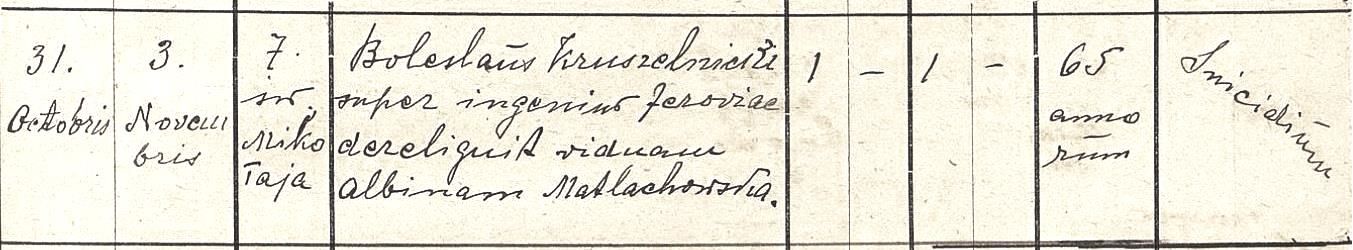 31.
Octobris
3.
Novem
bris
7.
św.
Miko
łaja
Boleslaus Kruszelnicki
super ingenius feroviae
dereliquit viduam
Albinam Matlachowska.
1 - 1 -
65
anno
rum
Suicidium